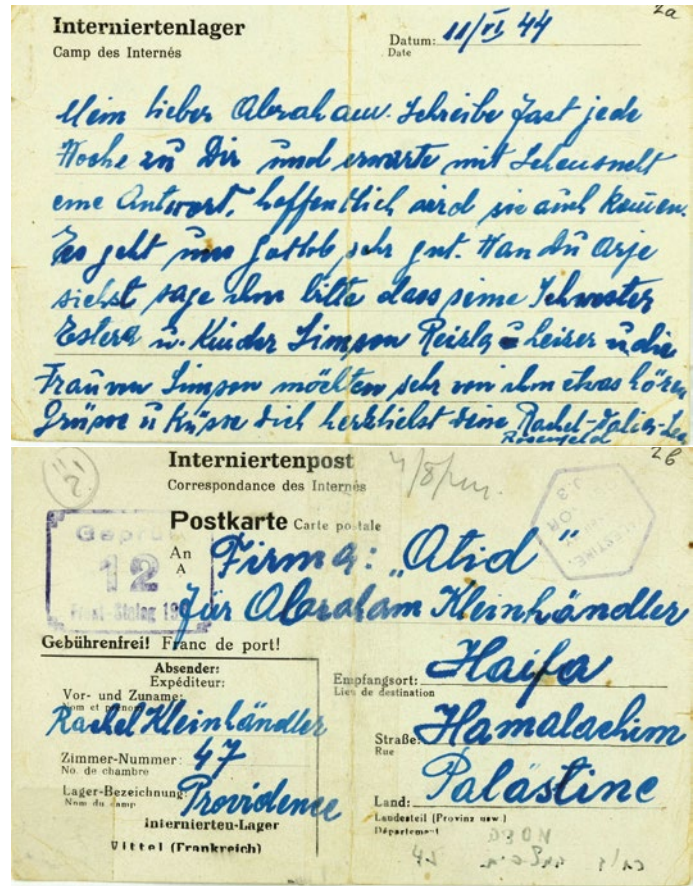 2a
Interniertenlager
Camp des Internés
Datum: 11/VI 44
Date
Mein lieber Abraham. Schreibe fast jede
Woche zu Dir und erwarte mit Sehensucht
eine Antwort, hoffentlich wird sie auch kommen.
Es geht uns Gottlob sehr gut. Wan du Arje
siehst sage ihm bitte dass seine Schwester
Estera u. Kinder Simpson Reisla u Leiser u die
Frau von Simpson möchten sehr von ihm etwas hören
Grüsse u Küsse dich herzlichst deine Rachel-
Rosenfeld
2b
Interniertenpost
Correspondance des Internés
Postkarte Carte postale
Geprüft
12
Front-Stalag 19
An Firma: „Atid"
A
für Abraham Kleinhändler
Gebührenfrei! Franc de port!
Absender:
Expéditeur:
Vor- und Zuname:
Nom et prénom
Rachel Kleinhändler
Zimmer-Nummer: 47
No. de chambre
Lager-Bezeichnung: Providence
Nom du camp
Internierten-Lager
Vittel (Frankreich)
Empfangsort: Haifa
Lieu de destination
Straße: Hamalachim
Rue
Land: Palästine
Landesteil (Provinz usw.)
Département